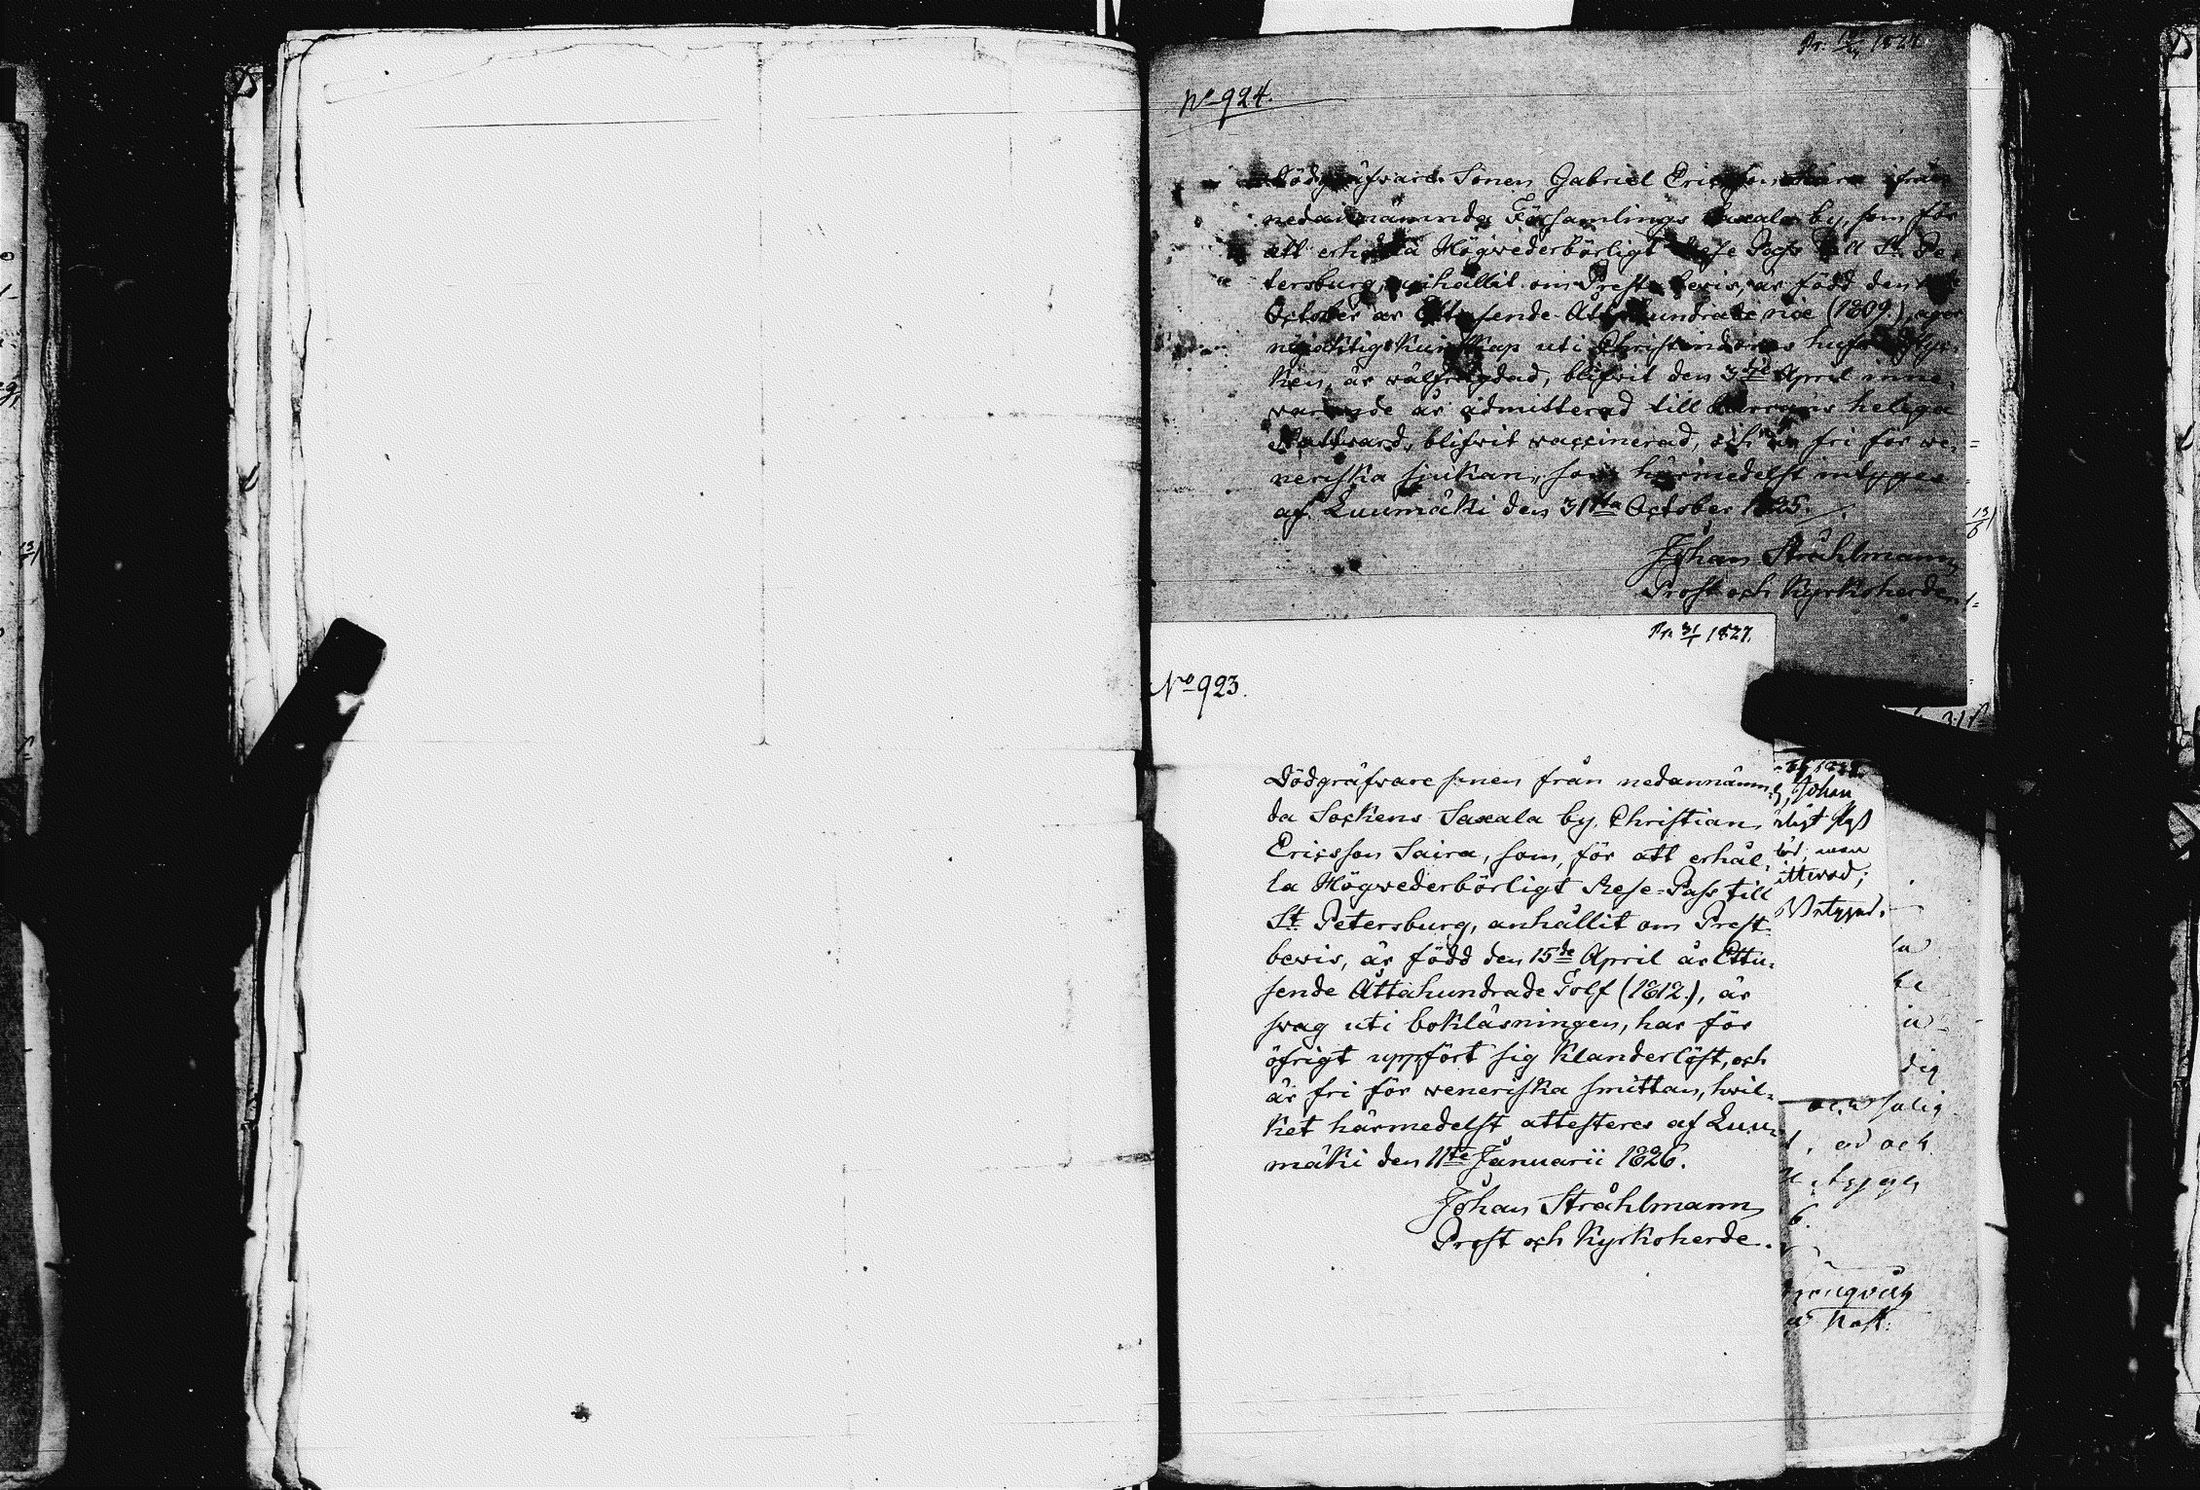 1827.
No 924.
Dödgräfware Sonen Gabriel Ericsson ifrån
nedannämnda Församlings Saxala by, som för
att erhålla Högwederbörligt Rese Pass till St. Pe-
tersburg, anhållit om Prestbewis, är född den
October år Ettusende Åttahundrade nio (1809.), äger
nöjaktig Kunskap uti Christendomens hufwudstyc-
ken, är wälfrägdad, blifwit den 3dje April inne-
warande år admitterad till Herrans heliga
Nattward, blifwit waccinerad, och är fri för we-
neriska sjukan, som härmedelst intygas
af Luumäki den 31sta October 1825.
Johan Stråhlmann
Prost och Kyrkoherde
Pr. 31/1 1827.
No 923.
Dödgräfware sonen från nedannämn-
da Sockens Saxala by, Christian
Ericsson Saira, som, för att erhål-
la Högwederbörligt Rese-Pass till
St. Petersburg, anhållit om Prest-
bewis, är född den 15de April år Ettu-
sende Åttahundrade Tolf (1812.), är
swag uti bokläsningen, har för
öfrigt uppfört sig klanderlöst, och
är fri för weneriska smittan, hwil-
ket härmedelst attesteras af Luu-
mäki den 11te Januarii 1826.
Johan Stråhlmann
Prost och Kyrkoherde.
Johan
od och